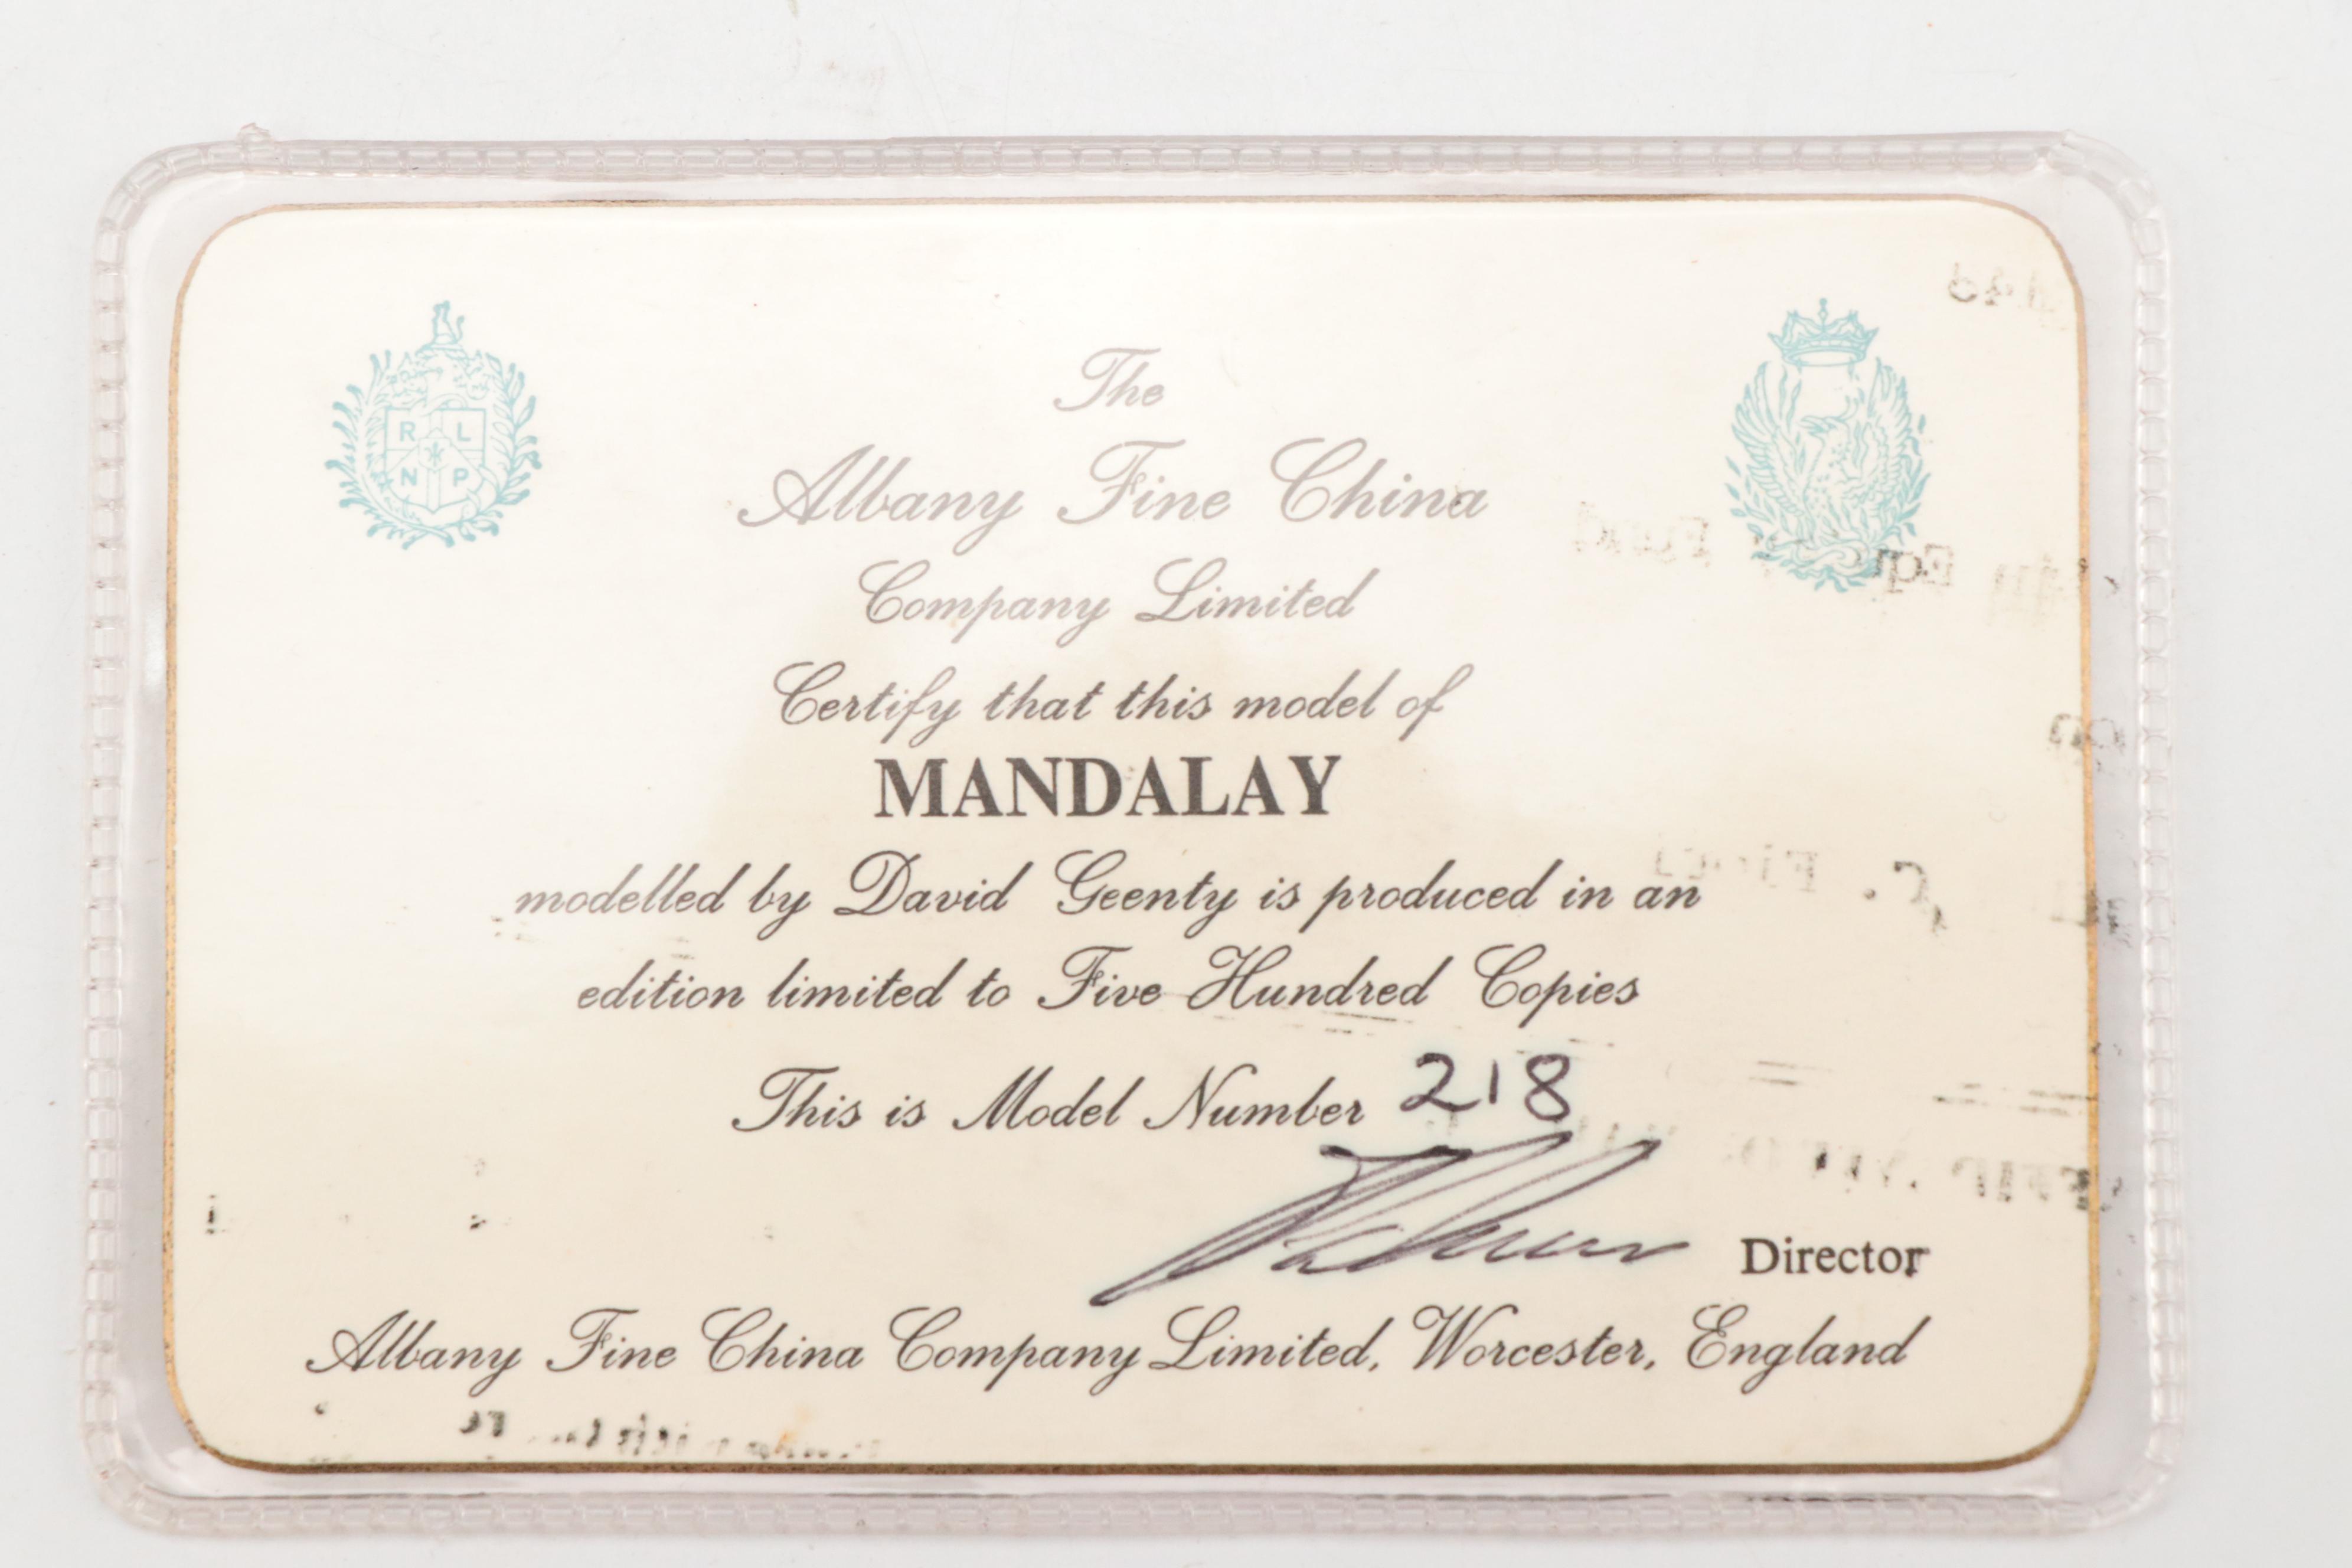 R L
N P
The
Albany Fine China
Company Limited
Certify that this model of
MANDALAY
modelled by David Geenty is produced in an
edition limited to Five Hundred Copies
This is Model Number 218
Director
Albany Fine China Company Limited, Worcester, England